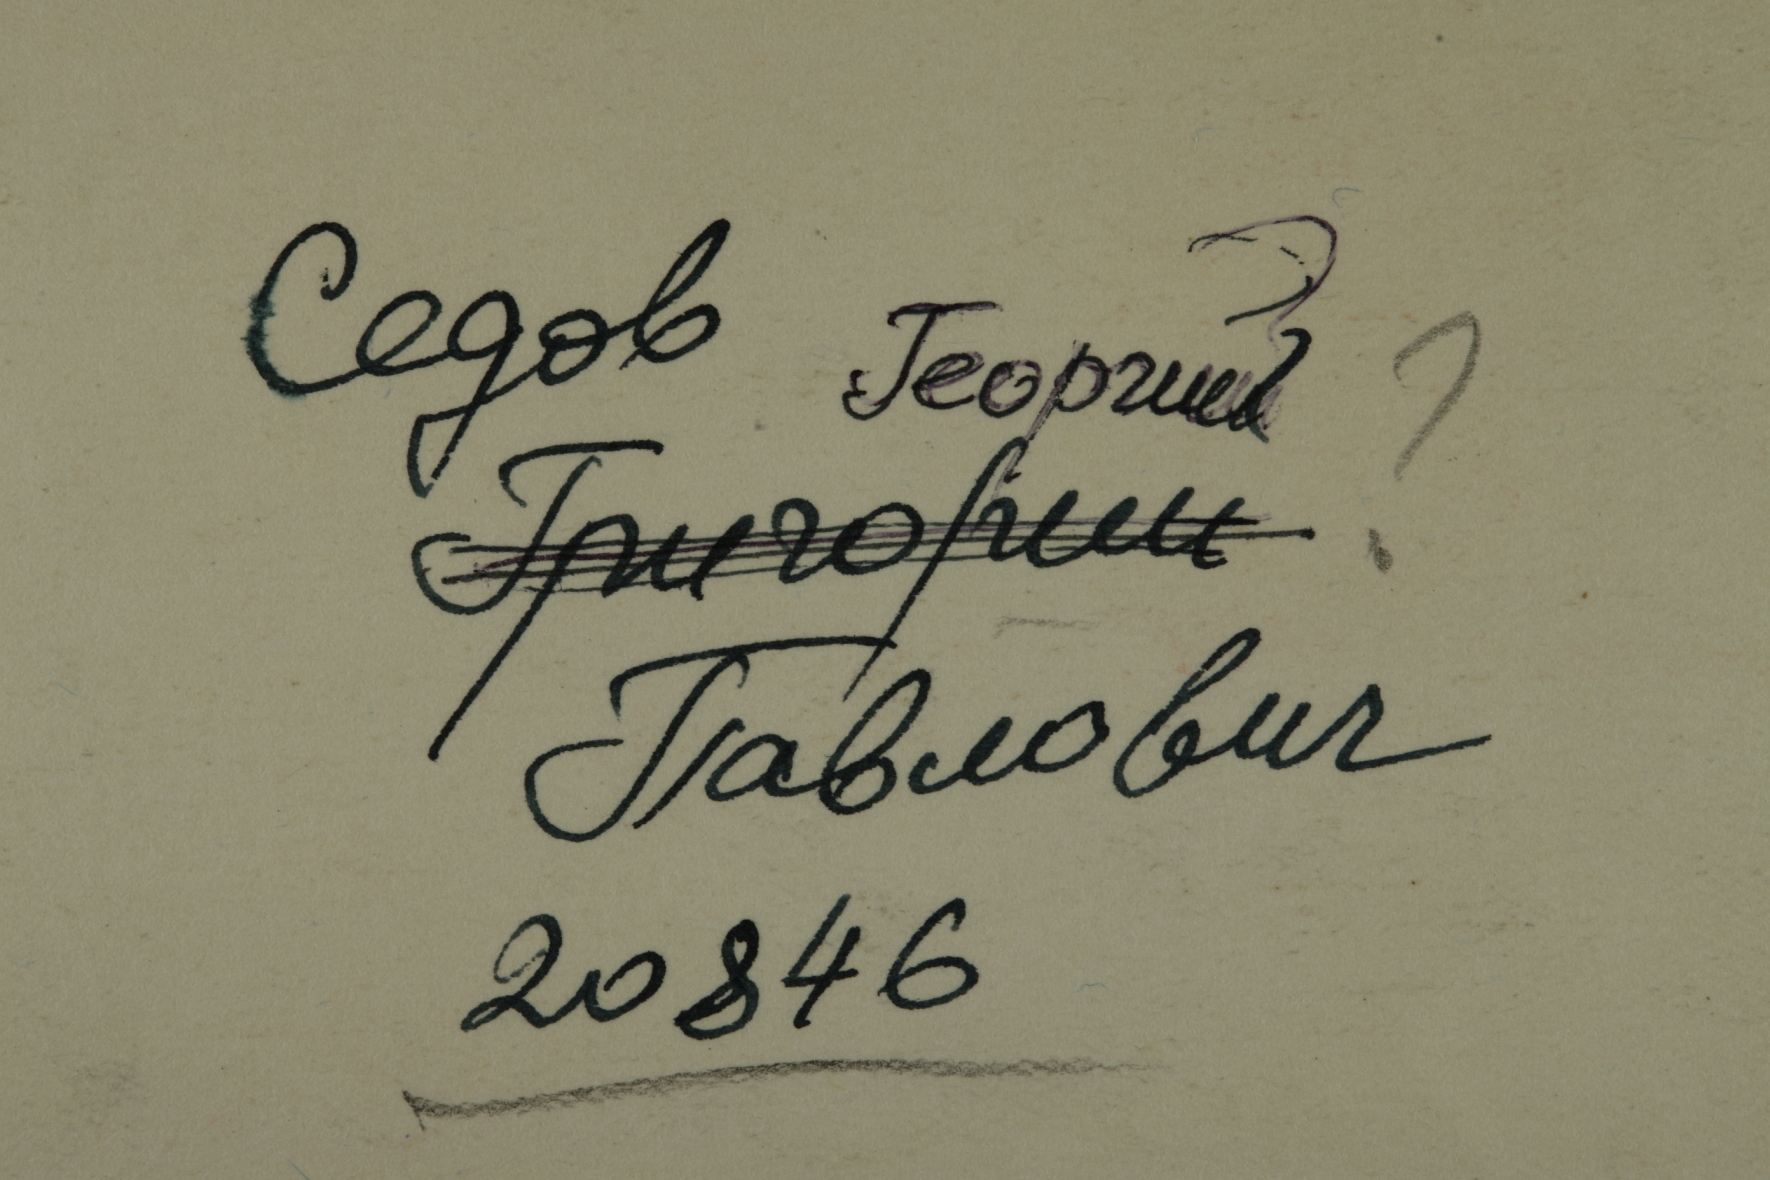 Седов Георгий ?
Григории
Павлович
20846